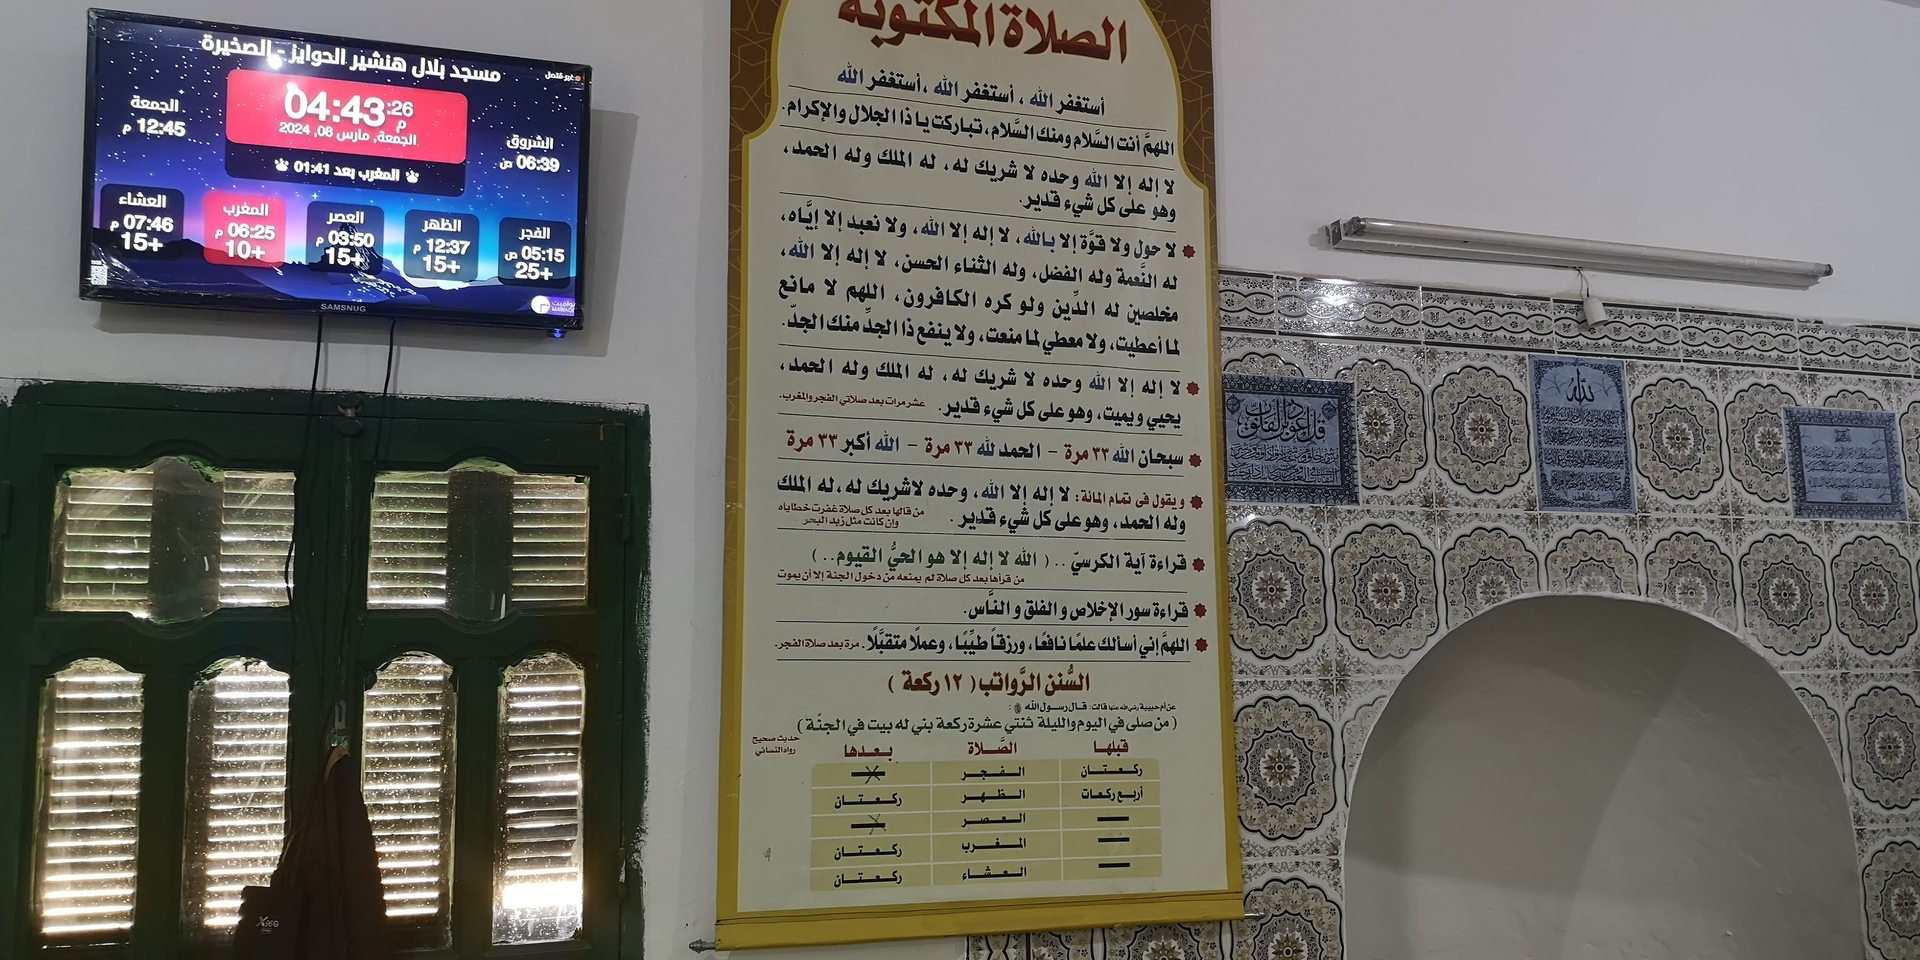 مسجد بلال هنشير الحوايز - الصخيرة
غير متصل
04:43:26 م
الجمعة, مارس 08, 2024
المغرب بعد 01:41
الجمعة
12:45 م
الشروق
06:39 ص
الفجر
05:15 ص
25+
الظهر
12:37 م
15+
العصر
03:50 م
15+
المغرب
06:25 م
10+
العشاء
07:46 م
15+
SAMSNUG
الصلاة المكتوبة
أستغفر الله ، أستغفر الله ،أستغفر الله
اللهمَّ أنت السَّلام ومنك السَّلام، تباركت يا ذا الجلال والإكرام.
لا إله إلا الله وحده لا شريك له، له الملك وله الحمد،
وهو على كل شيء قدير.
لا حول ولا قوَّة إلا بالله، لا إله إلا الله، ولا نعبد إلا إيَّاه،
له النَّعمة وله الفضل، وله الثناء الحسن، لا إله إلا الله،
مخلصين له الدِّين ولو كره الكافرون، اللهم لا مانع
لما أعطيت، ولا معطي لما منعت، ولا ينفع ذا الجدِّ منك الجدّ.
لا إله إلا الله وحده لا شريك له، له الملك وله الحمد،
يحيي ويميت، وهو على كل شيء قدير. عشر مرات بعد صلاتي الفجر والمغرب.
سبحان الله ٣٣ مرة - الحمد لله ٣٣ مرة - الله أكبر ٣٣ مرة
ويقول في تمام المائة: لا إله إلا الله، وحده لاشريك له،له الملك
وله الحمد، وهو على كل شيء قدير.
من قالها بعد كل صلاة غفرت خطاياه
وإن كانت مثل زبد البحر
قراءة آية الكرسيّ .. ( الله لا إله إلا هو الحيُّ القيوم.. )
من قرأها بعد كل صلاة لم يمنعه من دخول الجنة إلا أن يموت
قراءة سور الإخلاص و الفلق و النَّاس.
اللهمَّ إني أسألك علمًا نافعًا، ورزقاً طيِّبًا، وعملًا متقبَّلًا. مرة بعد صلاة الفجر.
السُّنن الرَّواتب ( ١٢ ركعة )
عن أم حبيبة رضي الله عنها قالت: قال رسول الله ﷺ :
( من صلى في اليوم والليلة ثنتي عشرة ركعة بني له بيت في الجنَّة )
حديث صحيح
رواه النسائي
قبلها الصَّلاة بعدها
ركعتان الفجر —
أربع ركعات الظهر ركعتان
— العصر —
— المغرب ركعتان
— العشاء ركعتان
الله
X96Q